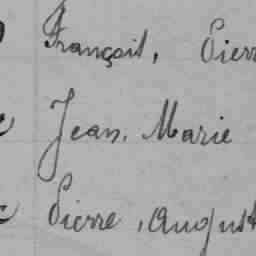 François, Pierr
Jean, Marie
Pierre, August